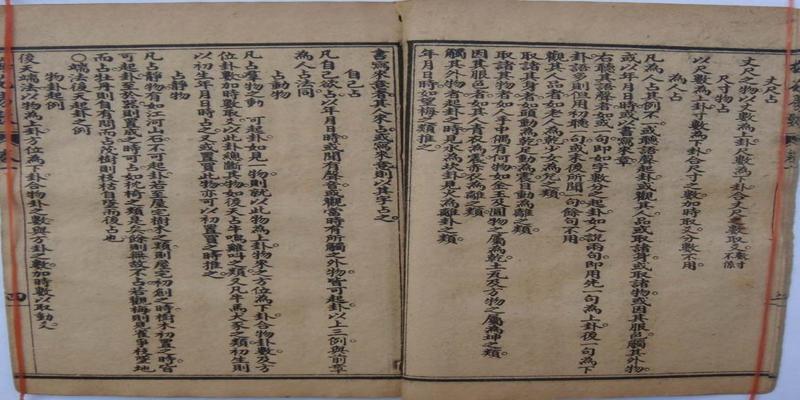 丈尺占
丈尺之物以丈數為上卦尺數為下卦合丈尺之數取爻數寸不係
尺寸物占
以尺數為上卦寸數為下卦合尺寸之數加時取爻分數不用
為人占
凡為人占其例不一或聽語聲起卦或觀其人品或取諸身或取諸物或因其服色觸其外物
或以年月日時或以書寫來意
右聽其語聲者如或一句即如字數分之起卦如人說兩句即用先一句為上卦後一句為下
卦語多則但用初聽一句或末後所聞一句餘句不用
觀其人品者如老人為乾少女為兌之類
取諸其身者如頭動為乾足動為震目動為離之類
取諸其物者如人手中偶有何物如金玉及圓物之屬為乾土瓦及方物之屬為坤之類
因其服色者如其人青衣為震赤衣為離之類
觸其外物者起卦之時見水為坎卦見火為離卦之類
年月日時如觀梅之類推之
書寫來意者其人來占或寫來意則以其字占之
自己占
凡自己欲占以年月日時或聞有聲音或觀當時有所觸之外物皆可起卦以上三例與前章
為人占法同
占動物
凡占羣物之動不可起卦如見一物則就以此物為上卦物來之方位為下卦合物卦數及方
位卦數加時數取爻以此卦總斷其物如後天占牛鳴雞叫之類又凡牛馬犬豕之類初生則
以初生年月日時占之又或置買此物亦可以初置買之時推之
占靜物
凡占靜物有如江河山石不可起卦若至屋宅樹木之類則屋宅初創之時樹木初置之時皆
可起卦至於器則置成之時可占如枕椅之類是矣餘則無故不占若觀梅則見雀爭枝墜地
而占牡丹則自有問而占茂樹則枝枯自墜而後占也
○端法後天起卦之例
物卦起例
後天端法以物為上卦方位為下卦合物卦之數與方卦之數加時數以取動爻